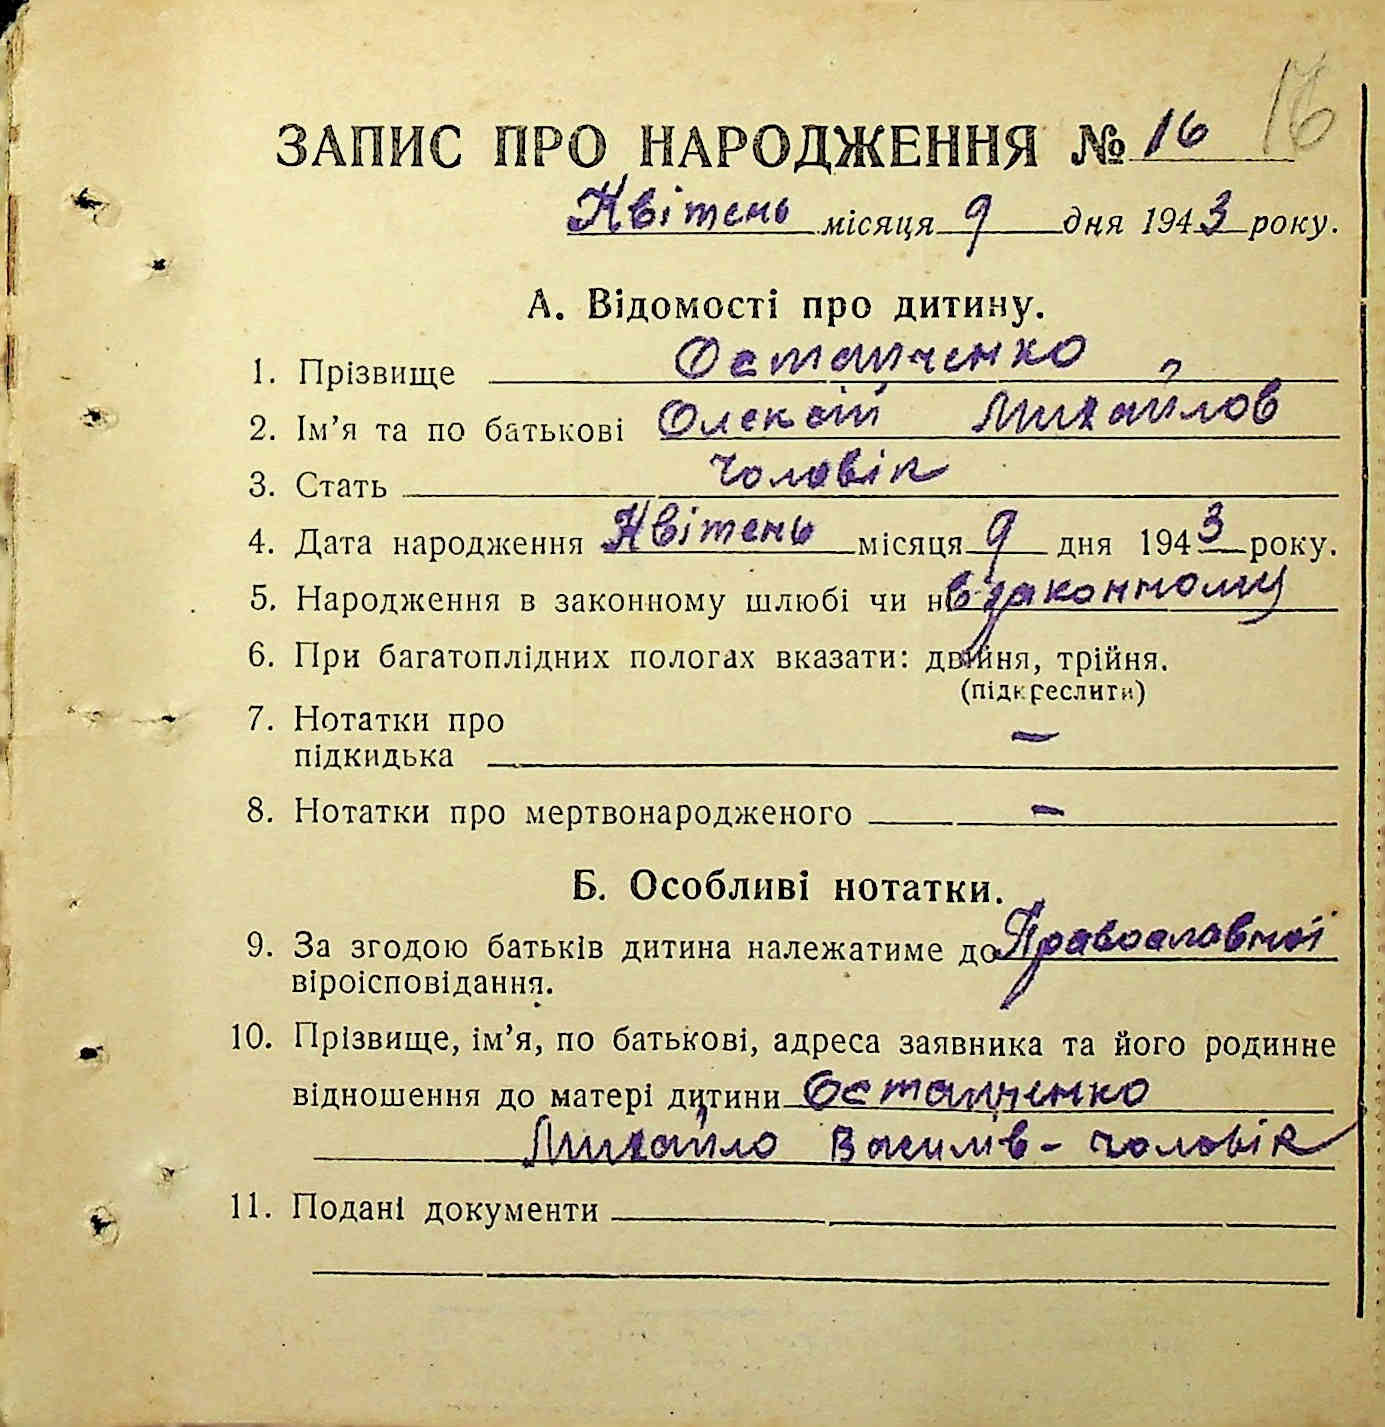 16
ЗАПИС ПРО НАРОДЖЕННЯ № 16
Квітень місяця 9 дня 1943 року.
А. Відомості про дитину.
1. Прізвище Остапченко
2. Ім’я та по батькові Олексій Михайлов
3. Стать чоловік
4. Дата народження Квітень місяця 9 дня 1943 року.
5. Народження в законному шлюбі чи ні в законному
6. При багатоплідних пологах вказати: двійня, трійня.
(підкреслити)
7. Нотатки про
підкидька —
8. Нотатки про мертвонародженого —
Б. Особливі нотатки.
9. За згодою батьків дитина належатиме до Православної
віроісповідання.
10. Прізвище, ім’я, по батькові, адреса заявника та його родинне
відношення до матері дитини Остапченко
Михайло Василів - чоловік
11. Подані документи